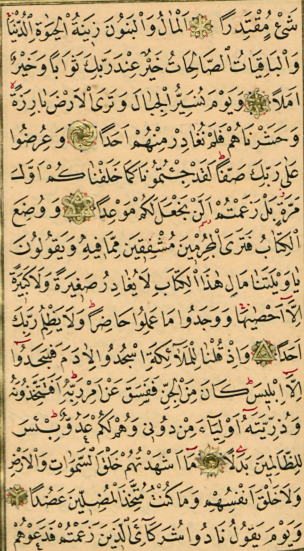 شَىْءٍ مُقْتَدِرًا اَلْمَالُ وَالْبَنُونَ زِينَةُ الْحَيٰوةِ الدُّنْيَا
وَالْبَاقِيَاتُ الصَّالِحَاتُ خَيْرٌ عِنْدَ رَبِّكَ ثَوَابًا وَخَيْرٌ
اَمَلًا وَيَوْمَ نُسَيِّرُ الْجِبَالَ وَتَرَى الْاَرْضَ بَارِزَةً
وَحَشَرْنَاهُمْ فَلَمْ نُغَادِرْ مِنْهُمْ اَحَدًا وَعُرِضُوا
عَلٰى رَبِّكَ صَفًّا لَقَدْ جِئْتُمُونَا كَمَا خَلَقْنَاكُمْ اَوَّلَ
مَرَّةٍ بَلْ زَعَمْتُمْ اَلَّنْ نَجْعَلَ لَكُمْ مَوْعِدًا وَوُضِعَ
الْكِتَابُ فَتَرَى الْمُجْرِمِينَ مُشْفِقِينَ مِمَّا فِيهِ وَيَقُولُونَ
يَاوَيْلَتَنَا مَالِ هٰذَا الْكِتَابِ لَا يُغَادِرُ صَغِيرَةً وَلَا كَبِيرَةً
اِلَّا اَحْصٰيهَا وَوَجَدُوا مَا عَمِلُوا حَاضِرًا وَلَا يَظْلِمُ رَبُّكَ
اَحَدًا وَاِذْ قُلْنَا لِلْمَلٰٓئِكَةِ اسْجُدُوا لِاٰدَمَ فَسَجَدُوا
اِلَّا اِبْلِيسَ كَانَ مِنَ الْجِنِّ فَفَسَقَ عَنْ اَمْرِ رَبِّهِ اَفَتَتَّخِذُونَهُ
وَذُرِّيَّتَهُ اَوْلِيَاءَ مِنْ دُونِى وَهُمْ لَكُمْ عَدُوٌّ بِئْسَ
لِلظَّالِمِينَ بَدَلًا مَا اَشْهَدْتُهُمْ خَلْقَ السَّمٰوَاتِ وَالْاَرْضِ
وَلَا خَلْقَ اَنْفُسِهِمْ وَمَا كُنْتُ مُتَّخِذَ الْمُضِلِّينَ عَضُدًا
وَيَوْمَ يَقُولُ نَادُوا شُرَكَآئِىَ الَّذِينَ زَعَمْتُمْ فَدَعَوْهُمْ